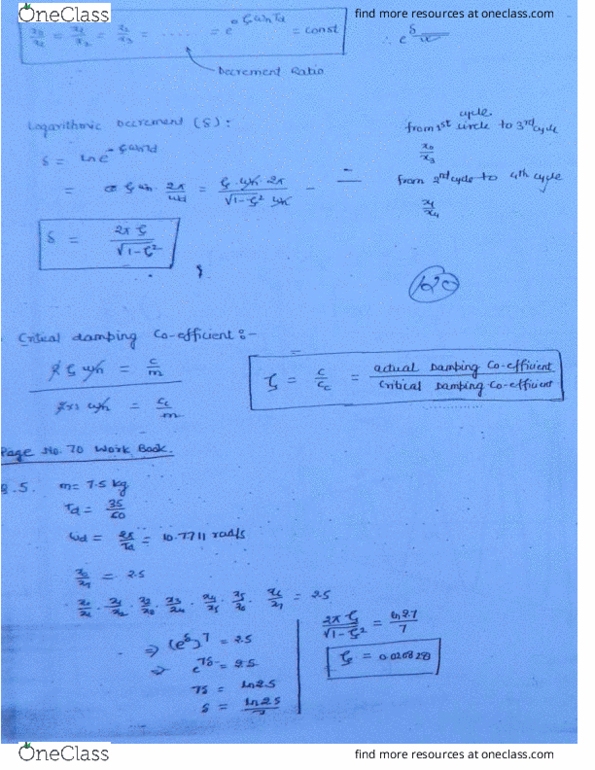 OneClass
find more resources at oneclass.com
x0/x1 = x1/x2 = x2/x3 = ..... = e^ζωnTd = const
∴ e^δ
Decrement Ratio
Logarithmic Decrement (δ):
δ = ln e^ζωnTd
= ζωn · 2π/ωd = ζ·ωn·2π/√1-ζ² ωn
δ = 2πζ/√1-ζ²
cycle
from 1st circle to 3rd cycle
x0/x3
from 2nd cycle to 4th cycle
x1/x4
120
Critical damping Co-efficient :-
2ζωn = c/m
2×1 ωn = cc/m
ζ = c/cc = actual Damping Co-efficient/Critical Damping Co-efficient
Page No. 70 Work Book.
m = 7.5 kg
Td = 35/60
ωd = 2π/Td = 10.7711 rad/s
x0/x7 = 2.5
x0/x1 · x1/x2 · x2/x3 · x3/x4 · x4/x5 · x5/x6 · x6/x7 = 2.5
⇒ (e^δ)^7 = 2.5
⇒ e^7δ = 2.5
7δ = ln 2.5
δ = ln 2.5/7
2πζ/√1-ζ² =
ζ =
OneClass
find more resources at oneclass.com